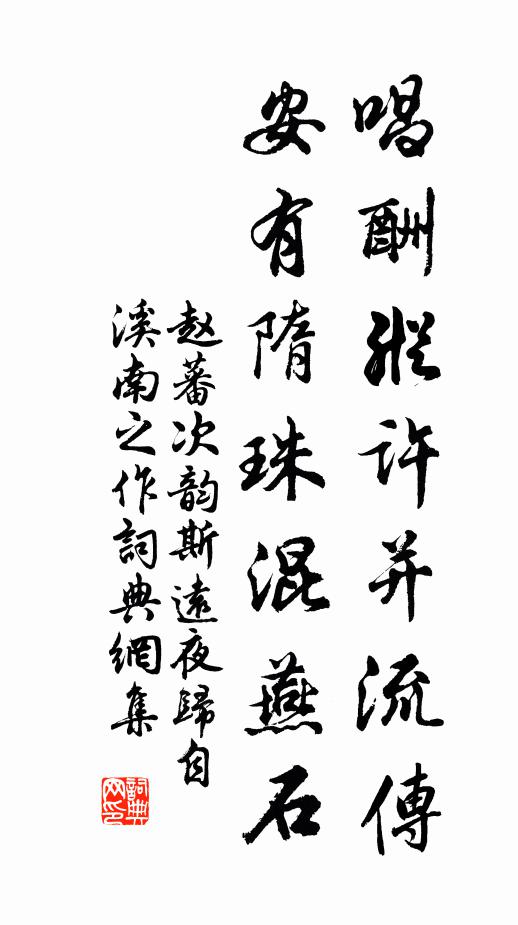 唱酬縱许并流傳
安有隋珠混燕石
赵蕃次韵斯遠夜歸自
溪南之作詞典網集
詞典网印